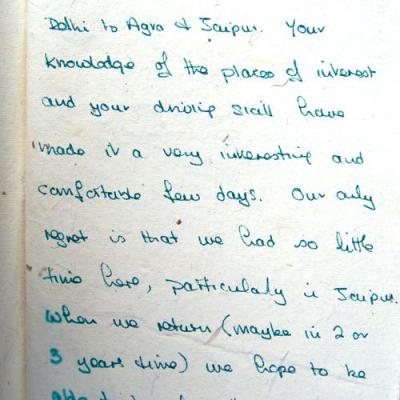 Delhi to Agra & Jaipur. Your
knowledge of the places of interest
and your driving skill have
made it a very interesting and
comfortable few days. Our only
regret is that we had so little
time here, particularly in Jaipur.
When we return (maybe in 2 or
3 years time) we hope to be
able to